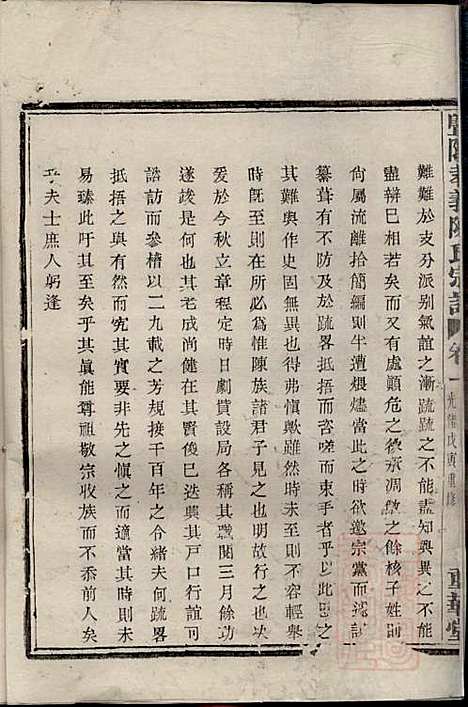 暨陽孝義陳氏宗譜 卷一 光緒戊寅重修 重華堂
難難於支分派别氣誼之漸疏疏之不能盡知與異之不能
盡辨巳相若矣而又有處顛危之後承凋斃之餘核子姓則
尚屬流離拾簡編則半遭煨燼當此之時欲邀宗黨而謀
纂葺有不防及於疏略抵捂而咨嗟而束手者乎以此思之
其難與作史固無異也得弗慎歟雖然時未至則不容輕舉
時既至則在所必為惟陳族諸君子見之也明故行之也決
爰於今秋立章程定時日劇貲設局各稱其職閱三月餘功
遂竣是何也其老成尚健在其賢後巳迭興其戸口行誼可
諮訪而參稽以二九載之芳規接千百年之令緒夫何疏略
抵捂之與有然而究其實要非先之慎之而適當其時則未
易臻此吁其至矣乎其真能尊祖敬宗收族而不忝前人矣
夫士庶人躬逢